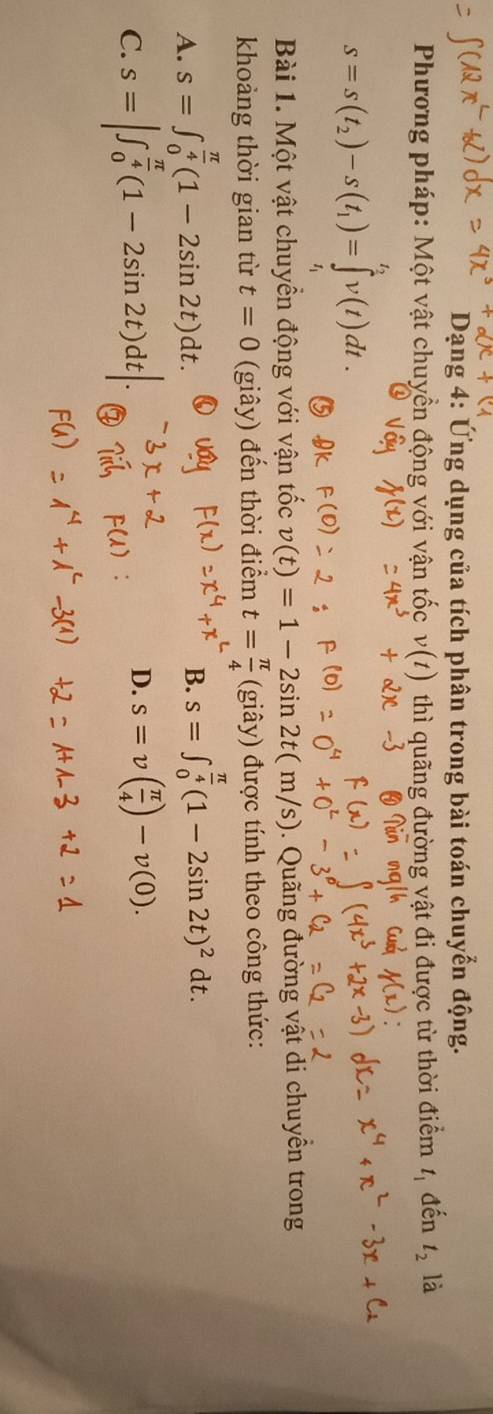 = ∫(12x² + 2)dx = 4x³ + 2x + C₁
Dạng 4: Ứng dụng của tích phân trong bài toán chuyển động.
Phương pháp: Một vật chuyển động với vận tốc v(t) thì quãng đường vật đi được từ thời điểm t₁ đến t₂ là
Vậy f(x) = 4x³ + 2x - 3
④ Tìm ngh của f(x):
s = s(t₂) - s(t₁) = ∫_{t₁}^{t₂} v(t)dt.
F(x) = ∫(4x³ + 2x - 3) dx = x⁴ + x² - 3x + C₂
⑤ ĐK F(0) = 2 : F(0) = 0⁴ + 0² - 3⁰ + C₂ = C₂ = 2
Bài 1. Một vật chuyển động với vận tốc v(t) = 1 - 2sin 2t( m/s). Quãng đường vật di chuyển trong
khoảng thời gian từ t = 0 (giây) đến thời điểm t = π/4 (giây) được tính theo công thức:
⑥ vậy F(x) = x⁴ + x²
-3x + 2
A. s = ∫_0^{π/4}(1 - 2sin 2t)dt.
B. s = ∫_0^{π/4}(1 - 2sin 2t)² dt.
C. s = |∫_0^{π/4}(1 - 2sin 2t)dt|.
D. s = v(π/4) - v(0).
⑦ Tính F(1) :
F(1) = 1⁴ + 1² - 3(1) + 2 = 1+1-3 + 2 = 1